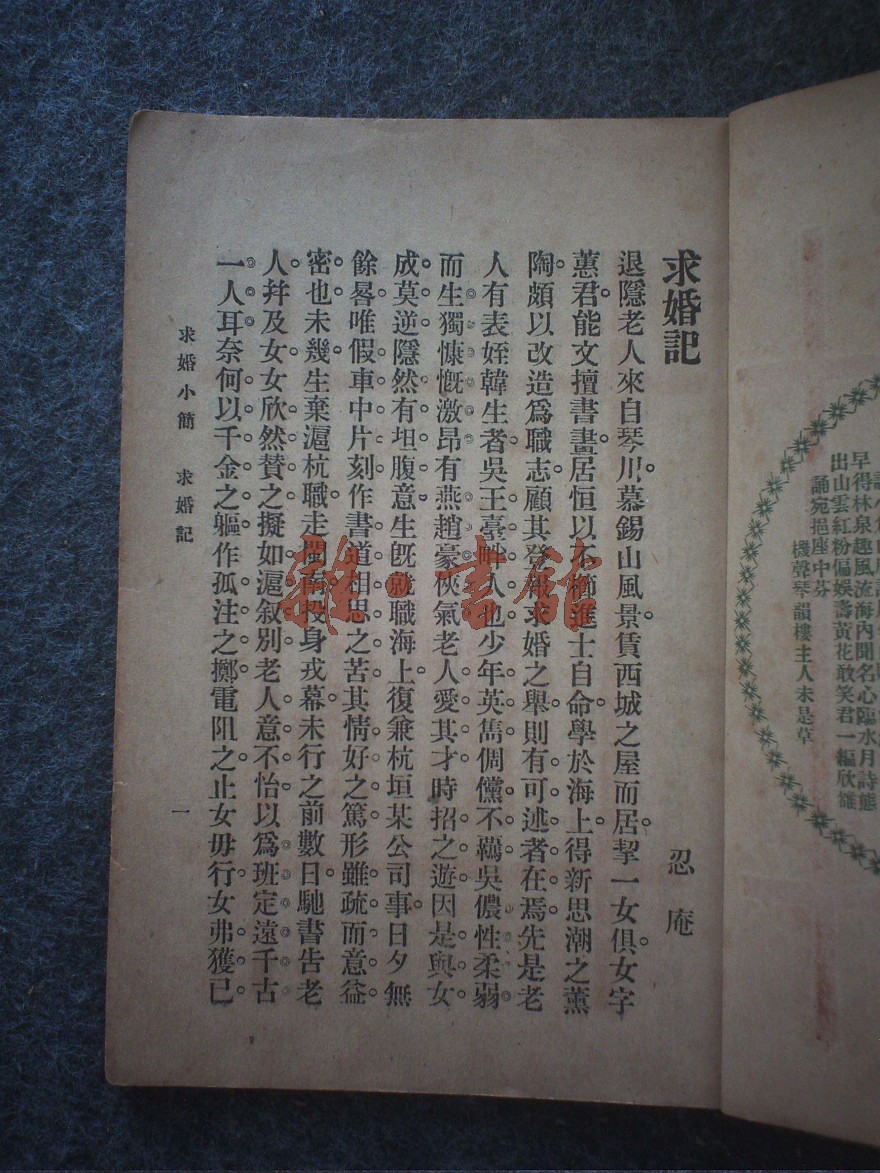 早得林泉趣風流海內聞名心臨水月詩態
出山雲紅粉偏娛壽黃花敢笑君一編欣雒
誦宛挹座中芬
機聲琴韻樓主人未是草
求婚記
忍庵
退隱老人來自琴川。慕錫山風景。賃西城之屋而居。挈一女俱。女字
蕙君。能文擅書畫。居恒以不櫛進士自命。學於海上。得新思潮之薰
陶。頗以改造爲職志。顧其登報求婚之舉。則有可述者在焉。先是老
人有表姪韓生者。吳王臺畔人也。少年英雋。倜儻不羈。吳儂性柔弱。
而生獨慷慨激昂。有燕趙豪俠氣。老人愛其才。時招之遊。因是與女
成莫逆。隱然有坦腹意。生旣就職海上。復兼杭垣某公司事。日夕無
餘晷。唯假車中片刻。作書道相思之苦。其情好之篤。形雖疏而意益
密也。未幾生棄滬杭職。走閩南。投身戎幕。未行之前數日。馳書告老
人。幷及女。女欣然贊之。擬如滬叙別。老人意不怡。以爲班定遠千古
一人耳。奈何以千金之軀。作孤注之擲。電阻之。止女毋行。女弗獲已
求婚小簡　求婚記
一
雜·書館